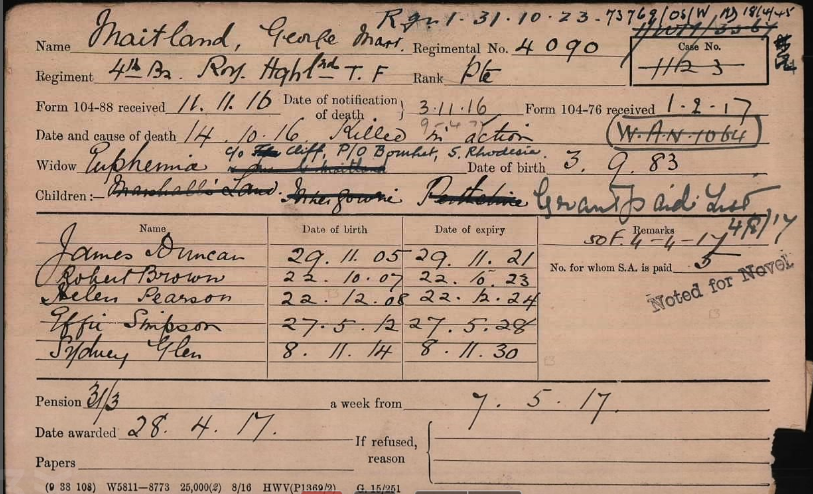 Regr 1. 31.10.23. 73769/OS/W 18/4/45
Name Maitland, George Marr. Regimental No. 4090
Case No.
11/M/3367
1123
Regiment 4th Bn. Roy. Hghlrs T. F Rank Pte
Form 104-88 received 11.11.16 Date of notification of death 3.11.16 Form 104-76 received 1-2-17
Date and cause of death 14.10.16 Killed in action
W.A.N. 1064
c/o Cliff, P/O Bomhet, S. Rhodesia.
Widow Euphemia Date of birth 3. 9. 83
Children:— Marshall's Land. Invergowrie Perthshire
Grant paid List
4/8/17
Name Date of birth Date of expiry Remarks
SOF. 4-4-17
James Duncan 29. 11. 05 29. 11. 21
No. for whom S.A. is paid 5
Robert Brown 22. 10. 07 22. 10. 23
Helen Pearson 22. 12. 08 22. 12. 24
Noted for Novel
Effie Simpson 27. 5. 12 27. 5. 28
Sydney Glen 8. 11. 14 8. 11. 30
Pension 31/3 a week from 7. 5. 17.
Date awarded 28. 4. 17.
If refused, reason
Papers
(9 38 108) W5811—8773 25,000(2) 8/16 HWV(P1369/2) G. 15/251